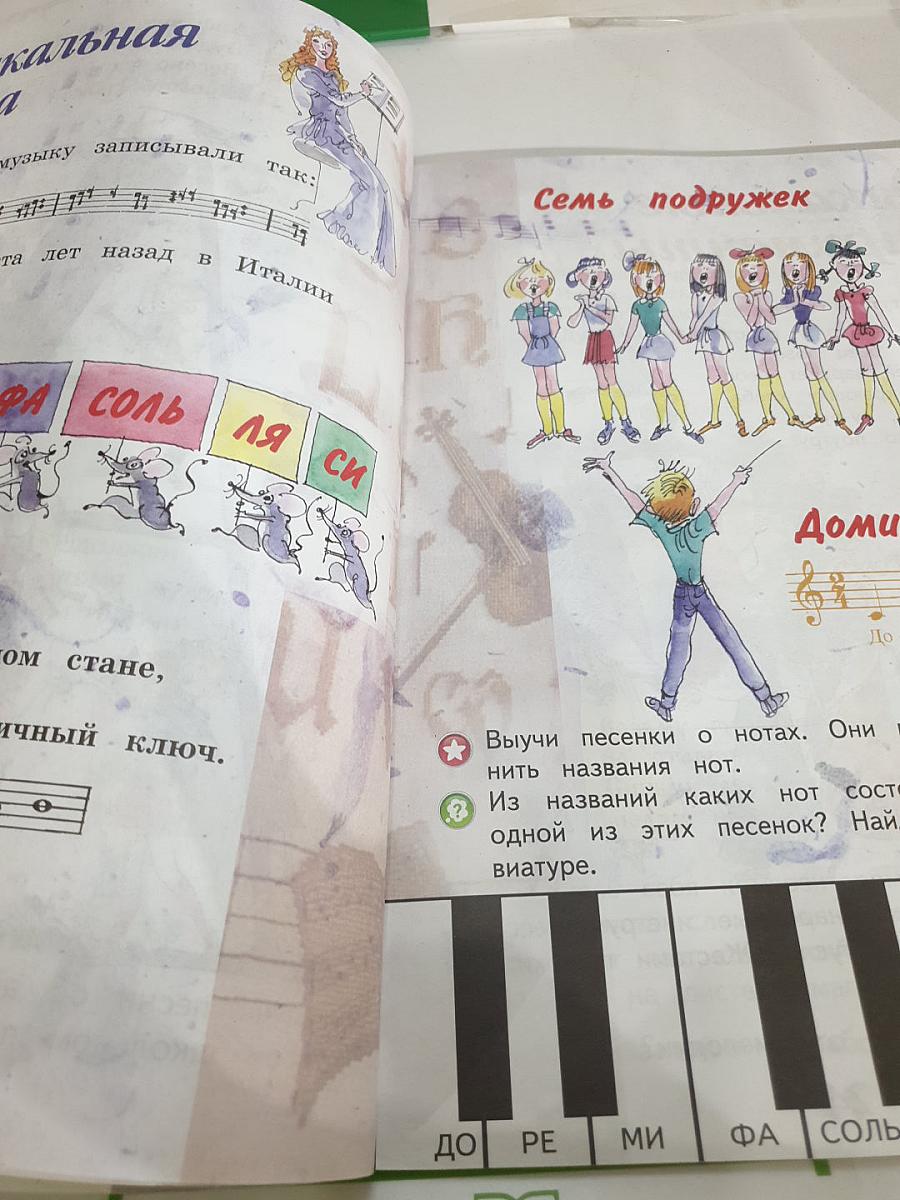 кальная
а
музыку записывали так:
та лет назад в Италии
ФА СОЛЬ ЛЯ СИ
ом стане,
ичный ключ.
Семь подружек
Доми
2
4
До
Выучи песенки о нотах. Они
нить названия нот.
Из названий каких нот сост
одной из этих песенок? Най
виатуре.
ДО РЕ МИ ФА СОЛЬ